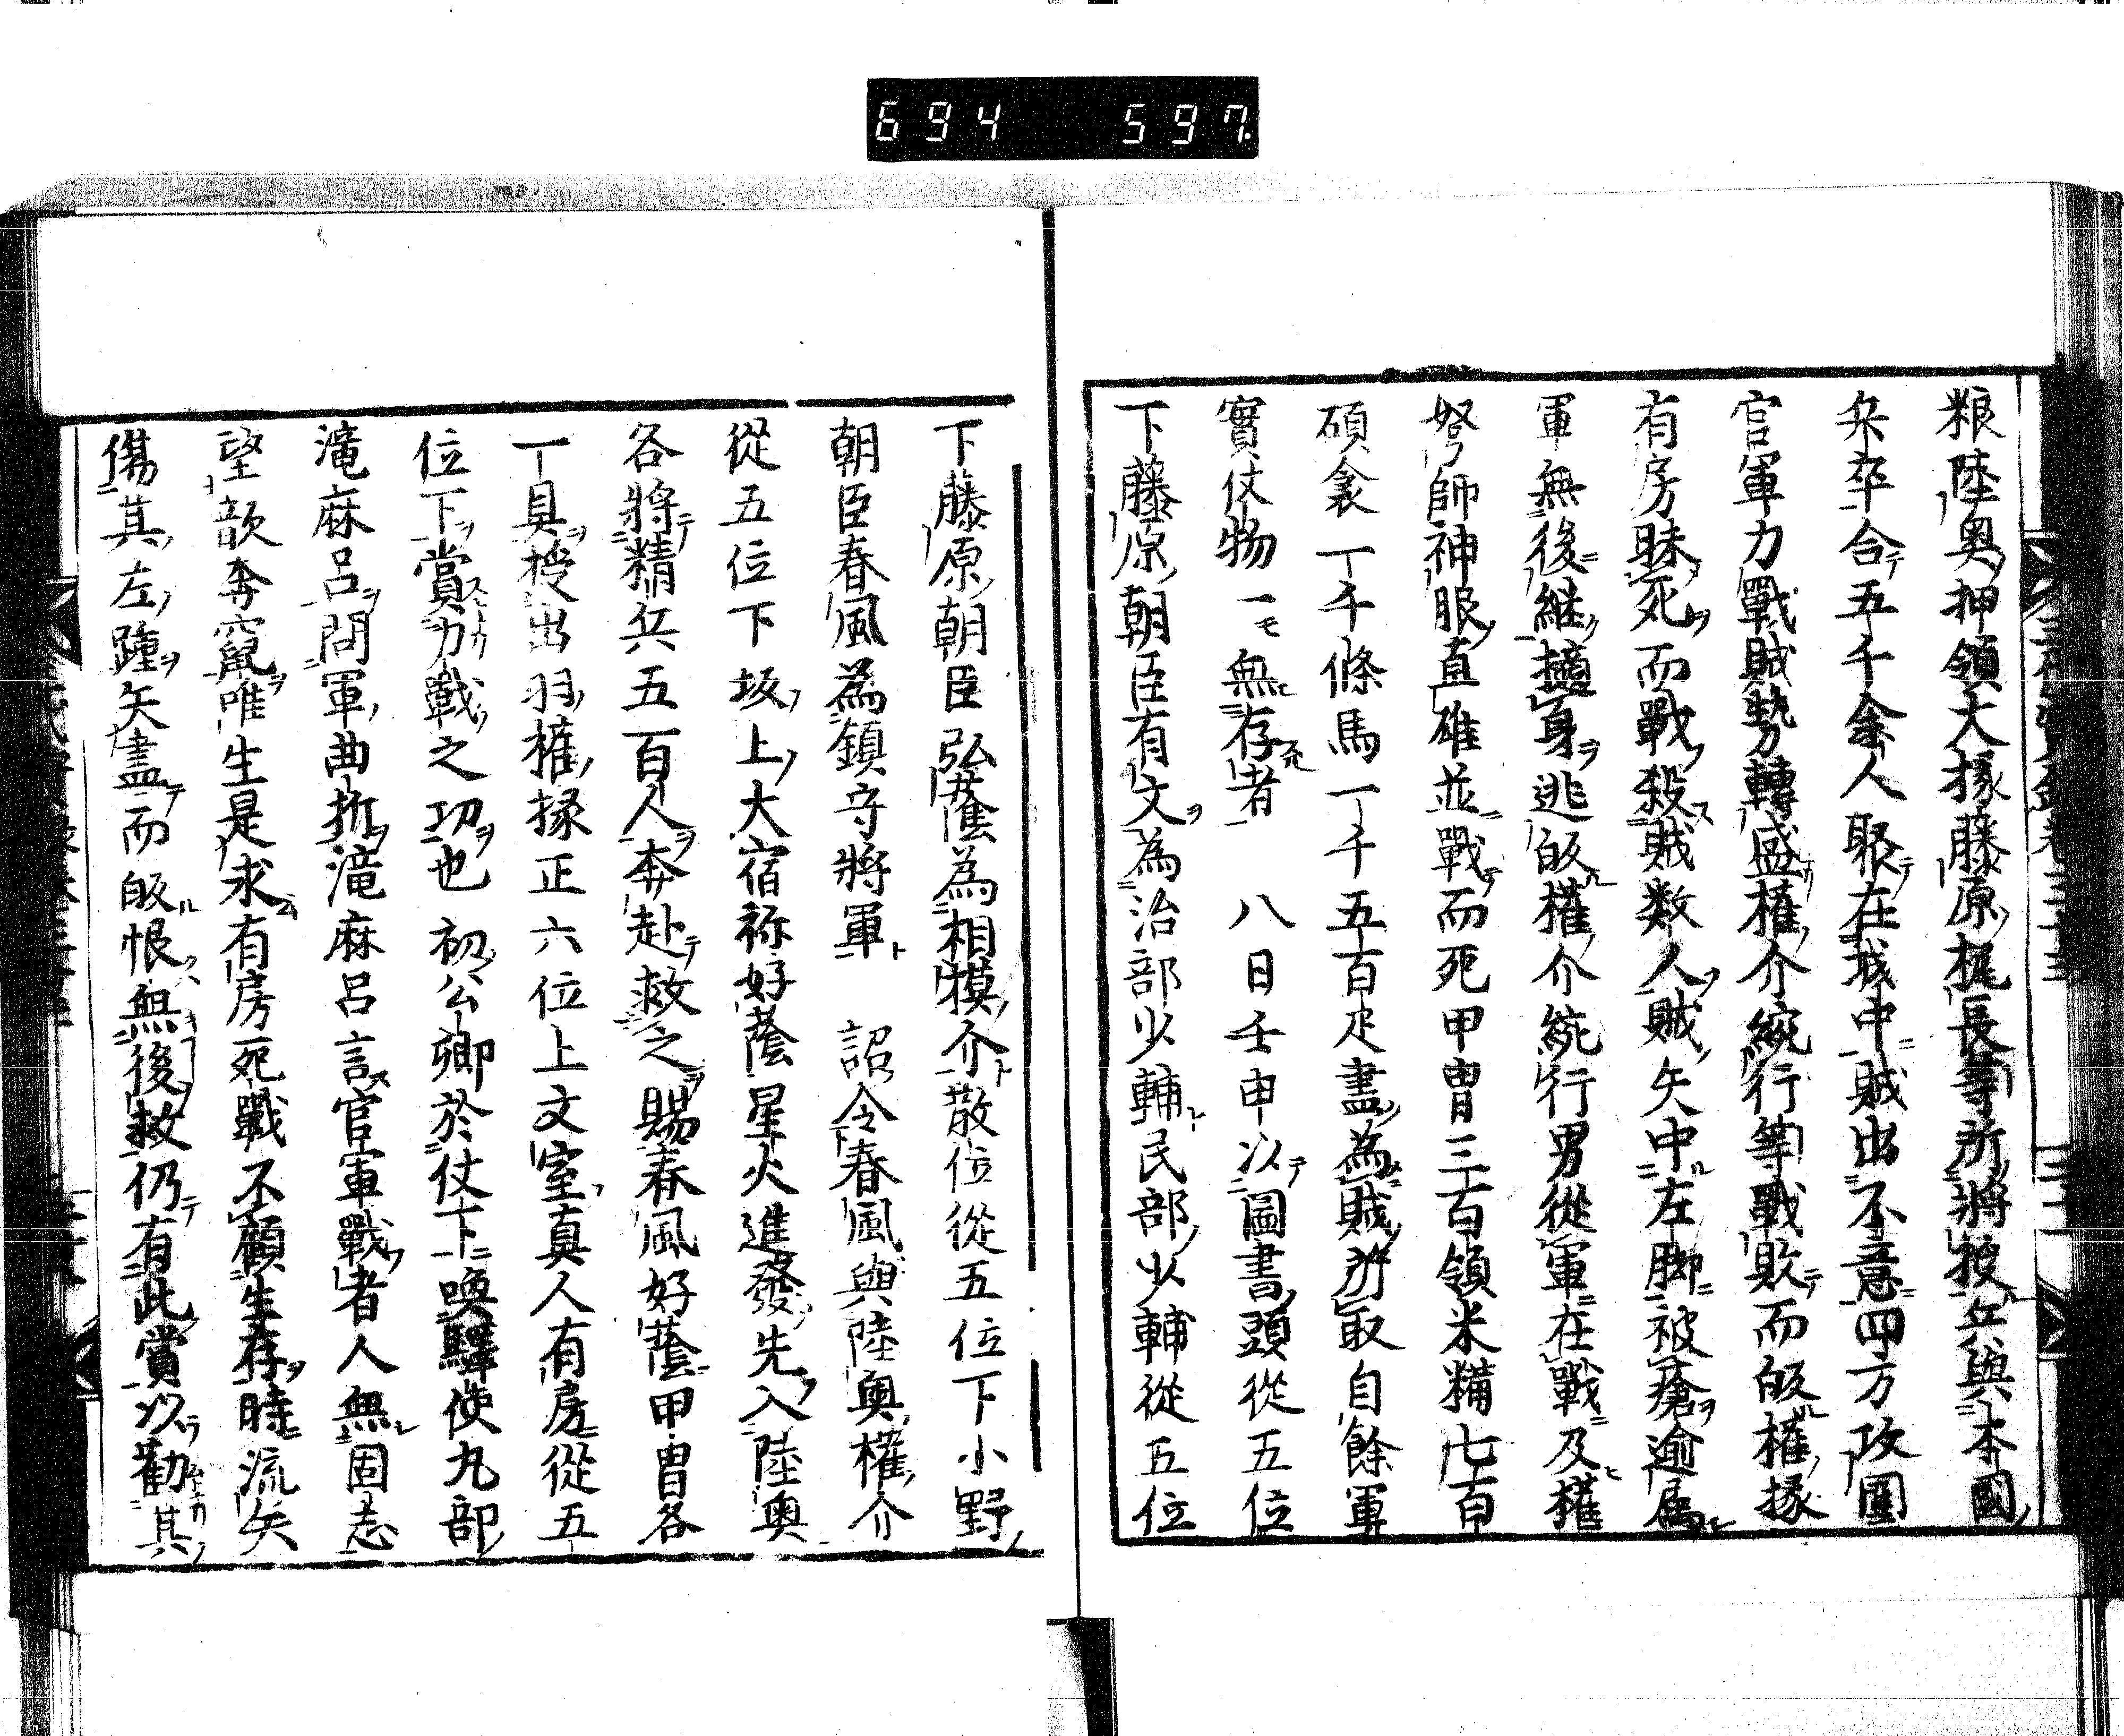 694 597
粮陸奥押領大掾藤原梶長等所將授兵與本國
兵卒合五千余人聚在城中賊出不意四方攻圍
官軍力戰賊勢轉盛權介統行等戰敗而皈權掾
有房昧死而戰殺賊数人賊矢中左脚被瘡逾属
軍無後継擡身逃皈權介統行男從軍在戰及權
弩師神服直雄並戰而死甲冑三百領米糒七百
碩衾一千條馬一千五百疋盡為賊所取自餘軍
實仗物一無存者 八日壬申以圖書頭從五位
下藤原朝臣有文為治部少輔民部少輔從五位
下藤原朝臣弘蔭為相模介散位從五位下小野
朝臣春風為鎮守將軍 詔令春風與陸奥權介
從五位下坂上大宿祢好蔭星火進發先入陸奥
各將精兵五百人奔赴救之賜春風好蔭甲冑各
一具授出羽權掾正六位上文室真人有房從五
位下賞力戰之功也初公卿於仗下喚驛使丸部
滝麻呂問軍曲折滝麻呂言官軍戰者人無固志
望歆奔竄唯生是求有房死戰不顧生存時流矢
傷其左踵矢盡而皈恨無後救仍有此賞以勸其